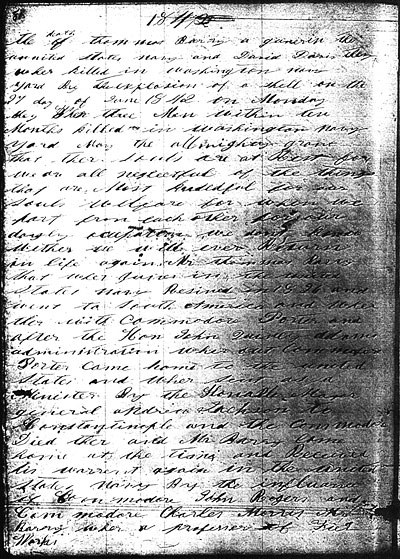 1842
the death of thommas Barry a guner in the
uunited States navy and David Davis they
wher killed in Washington navy
yard By the explosion of a shell on the
27 day of June 1842 on Monday
they three Men within ten
Months killed in Washington Navy
yard May the allmighty grant
that ther Souls are at Rest for
we are all neglectful of the things
that are Most needful for our
Souls wellfare for when we
part from each other for our
dayly ocupation we dont know
whether we will ever Return
in life again Mr thommas Barry
that wher guner in the united
States navy Resined in 1826 and
went to South America and wher
ther with Commodore Porter and
after the Hon John Quincy Adams
administration wher out Commodore
Porter Came home to the united
States and wher sent as a
Minester By the Honable Major
general Andrew Jackson to
Constantinople and the Commodore
Died ther and Mr Barry Come
home at the time and Received
his warrent again in the united
States Navy By the influance
of Commodore John Rogers and
Commadore Charles Morris Mr
Barry wher a professer of Fire
Works